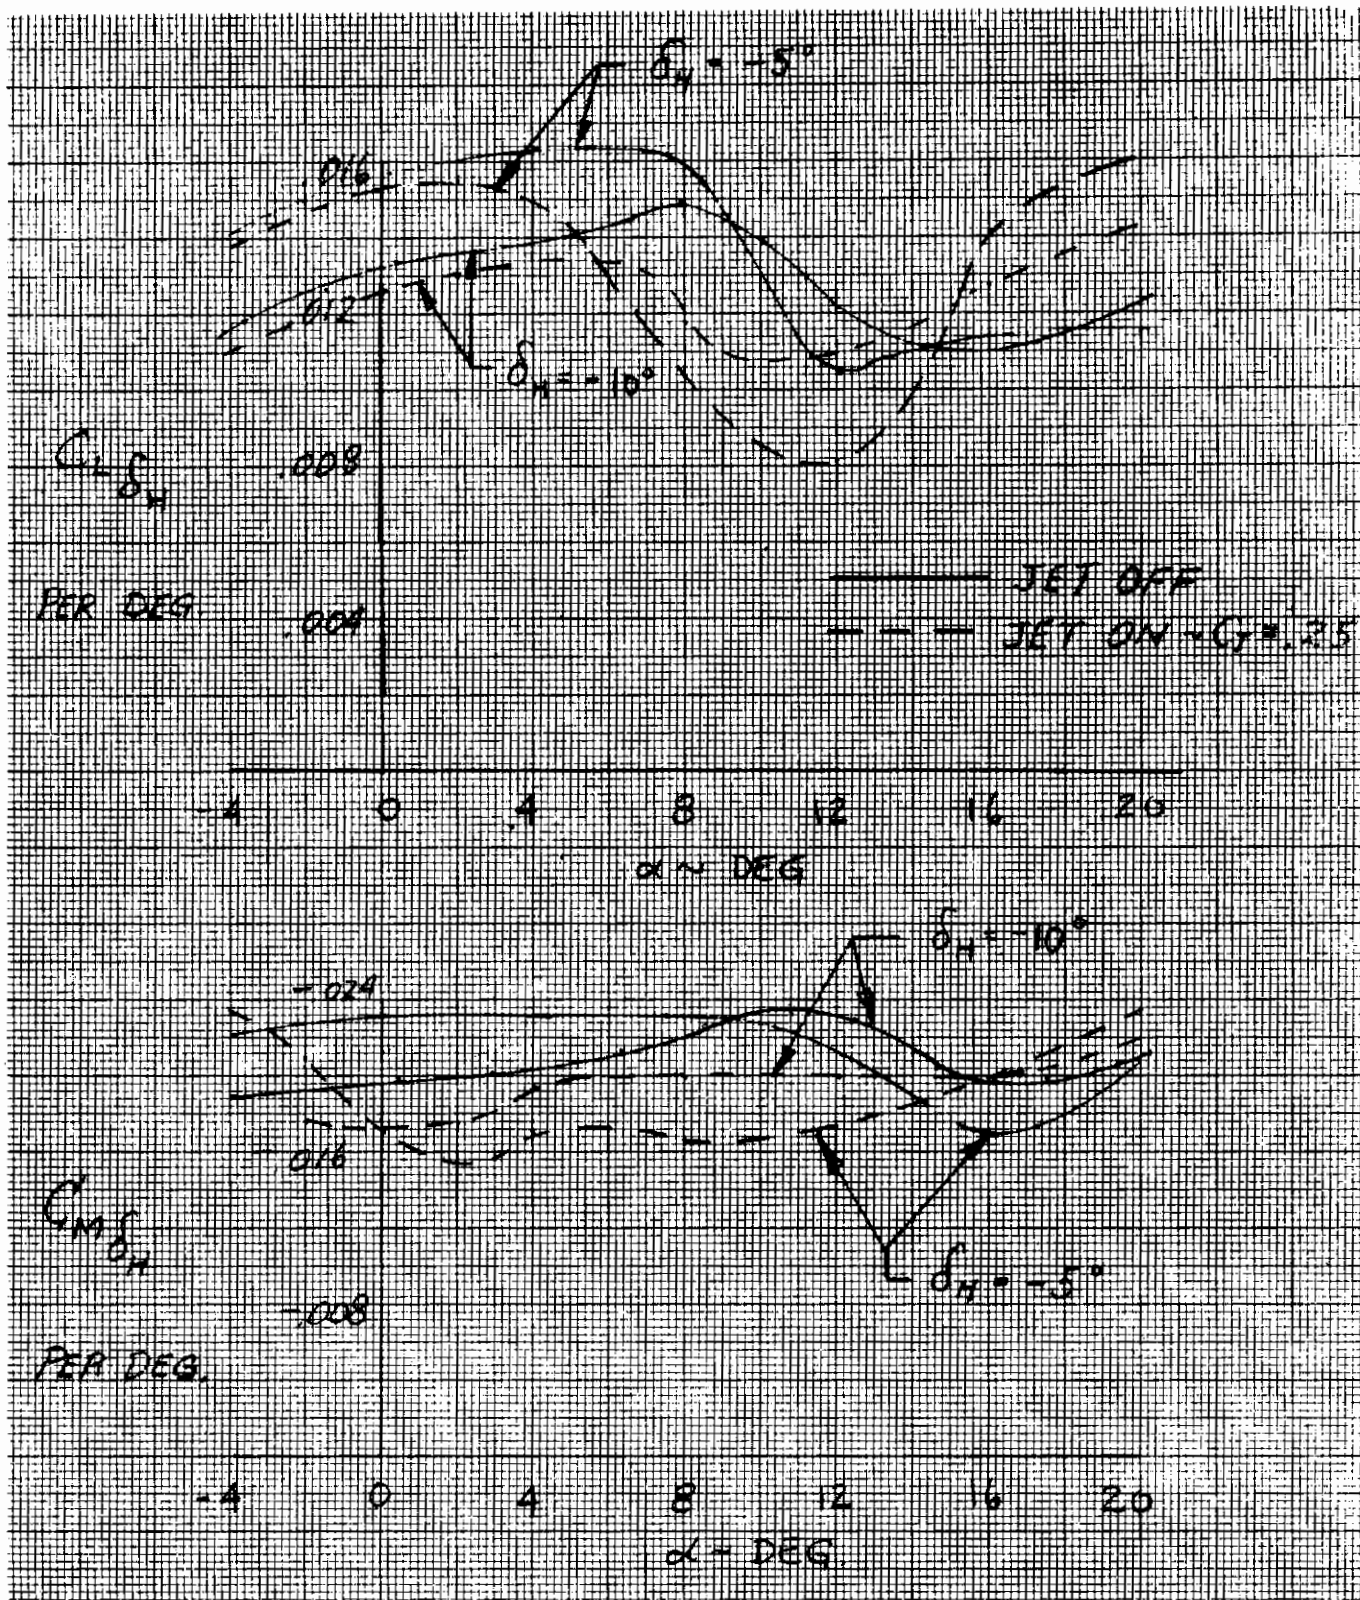 δH = -5°
.016
.012
δH = -10°
CLδH
.008
JET OFF
PER DEG.
.004
JET ON ~ CT = .25
-4 0 4 8 12 16 20
α ~ DEG
δH = -10°
-.024
-.016
CMδH
δH = -5°
-.008
PER DEG.
-4 0 4 8 12 16 20
α ~ DEG.